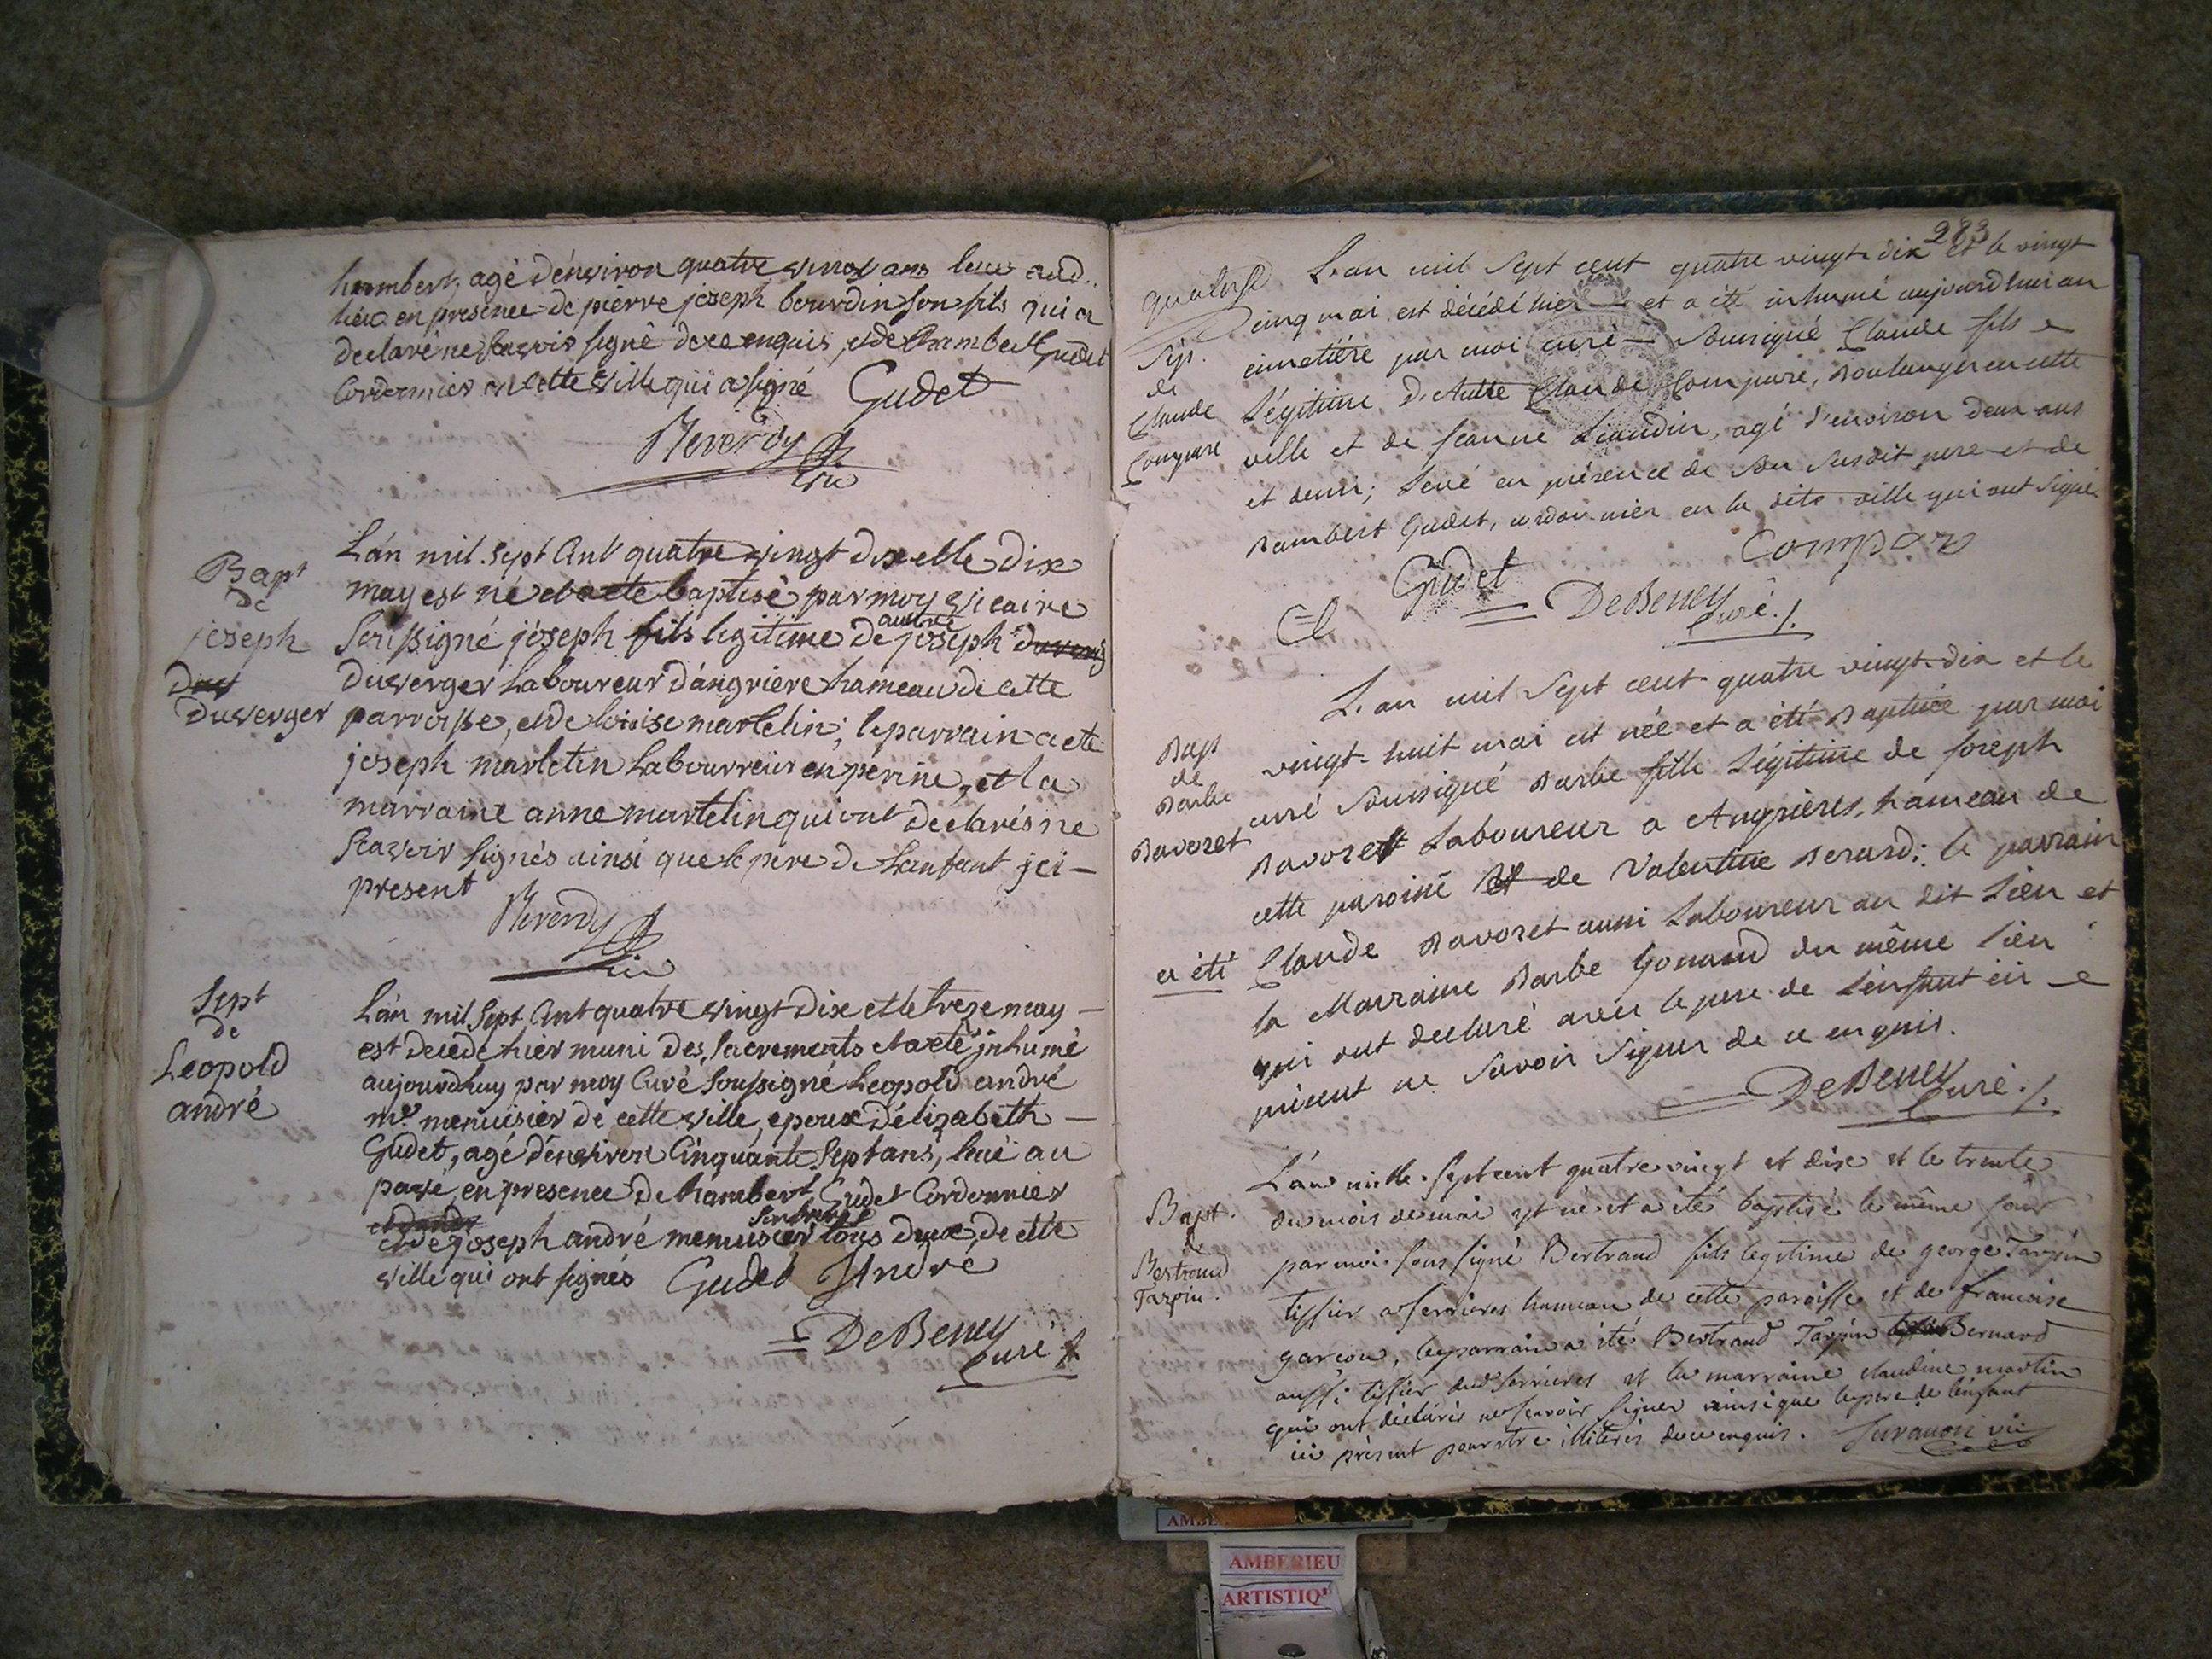 hambert, agé d'environ quatre vingt ans levé aud..
lieu en presence de pierre joseph bourdin son fils qui a
declaré ne scavoir signé de ce enquis, et de Rambert Gudet
Cordonnier en cette ville qui a signé Gudet
Reverdy
vic
Bapt
de
joseph
Duv
Duverger
L'an mil sept Cent quatre vingt dix et le dix
may est né et a eté baptisé par moy vicaire
soussigné joseph fils legitime de autre joseph duverg
duverger Laboureur d'angriere hameau de cette
parroisse, et de loüise martelin; le parrain a eté
joseph martelin Labourreur en perine, et la
marraine anne martelin qui ont declarés ne
Scavoir signés ainsi que le pere de Lenfant jci-
present
Reverdy
vic
Sept
de
Leopold
andré
L'an mil Sept Cent quatre vingt Dix et le treze may -
est decédé hier muni des Sacrements et a eté jnhumé
aujourdhuy par moy Curé soussigné Leopold andré
me. menuisier de cette ville, epoux d'élizabeth -
Gudet, agé d'environ Cinquante Sept ans, levé au
pavé, en presence de Rambert Gudet Cordonnier
et de joseph andré menuisier tous deux, de cette
ville qui ont signés Gudet Andre
= DeBeney
Curé
283
quatorse
Sep.
de
Claude
Compare
L'an mil sept cent quatre vingt-dix et le vingt
cinq mai est décédé hier - et a été inhumé aujourdhui au
cimetiére par moi curé - soussigné Claude fils
Légitime d'Autre Claude Compare, Boulanger en cette
ville et de Jeanne Liaudin, agé d'environ deux ans
et demi; Levé en présence de son susdit pere et de
Rambert Gudet, cordonnier en la dite ville qui ont signé.
Compar
Gudet
Cl
= DeBeney
Curé ./.
Bapt
de
Barbe
Bavoret
L'an mil sept cent quatre vingt-dix et le
vingt-huit mai est née et a été Baptisée par moi
curé soussigné Barbe fille Légitime de Joseph
Bavoret Laboureur a Angrières, hameau de
cette paroisse et de Valentine Berard: le parrain
a été Claude Bavoret aussi Laboureur au dit Lieu et
la Marraine Barbe Gonand du même Lieu
qui ont declaré avec le pere de L'enfant ici
présent ne savoir signer de ce enquis.
= DeBeney
Curé ./.
Bapt.
de
Bertrand
Tarpin.
L'an mille sept cent quatre vingt et dix et le trente
du mois de mai est né et a été baptisé le même jour
par moi soussigné Bertrand fils legitime de george Tarpin
tissier a Serrieres hameau de cette paroisse et de francoise
garcon, le parrain a été Bertrand Tarpin Bernard
aussi tissier dud Serrieres et la marraine claudine martin
qui ont déclarés ne savoir signer ainsi que le pere de l'enfant
ici présent pour etre illiterés de ce enquis.
AMBERIEU
ARTISTIQ